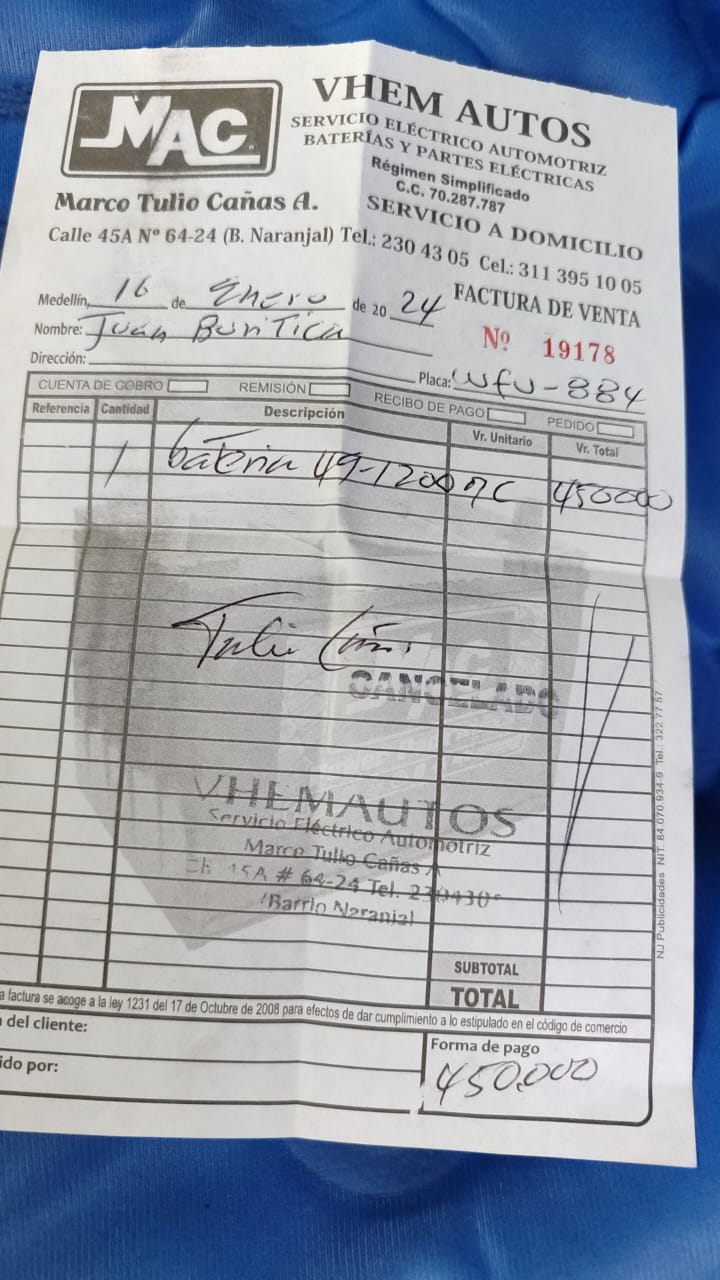 MAC
VHEM AUTOS
SERVICIO ELÉCTRICO AUTOMOTRIZ
BATERÍAS Y PARTES ELÉCTRICAS
Régimen Simplificado
C.C. 70.287.787
Marco Tulio Cañas A.
SERVICIO A DOMICILIO
Calle 45A Nº 64-24 (B. Naranjal) Tel.: 230 43 05 Cel.: 311 395 10 05
Medellín, 16 de Enero de 20 24
FACTURA DE VENTA
Nombre: Juan Buritica
Nº 19178
Dirección:
Placa: WFU-884
CUENTA DE COBRO REMISIÓN RECIBO DE PAGO PEDIDO
Referencia Cantidad Descripción Vr. Unitario Vr. Total
1 bateria 49-1200 MC 450000
Tulio Cañas
CANCELADO
VHEMAUTOS
Servicio Eléctrico Automotriz
Marco Tulio Cañas A
45A # 64-24 Tel. 230430
Barrio Naranjal
NJ Publicidades NIT. 84.070.934-9 Tel.: 322 77 57
SUBTOTAL
TOTAL
a factura se acoge a la ley 1231 del 17 de Octubre de 2008 para efectos de dar cumplimiento a lo estipulado en el código de comercio
del cliente:
Forma de pago
ido por:
450,000